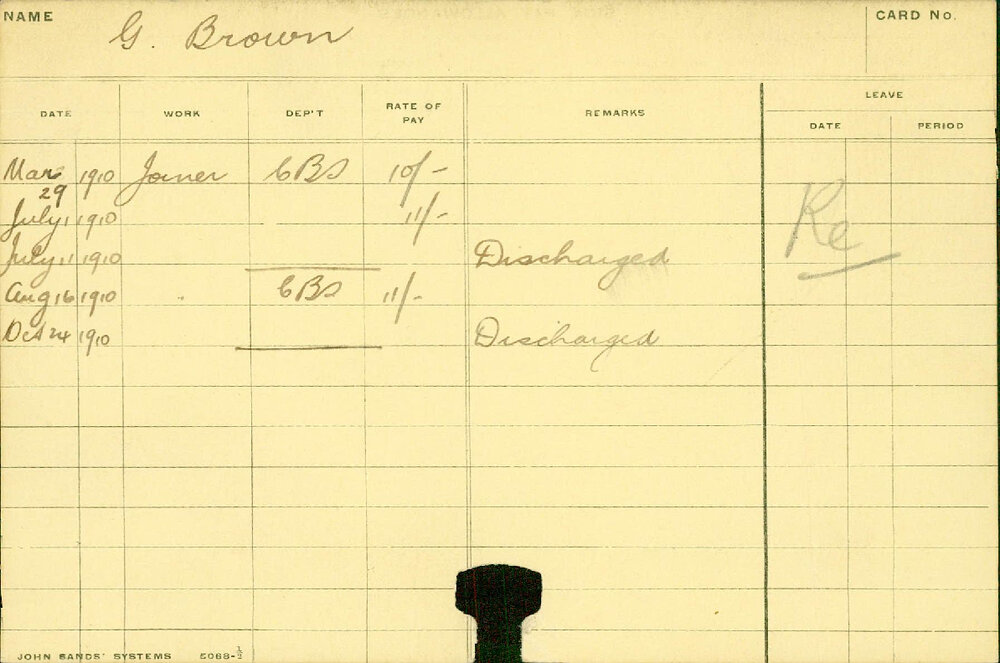 NAME G. Brown CARD No.
DATE WORK DEP'T RATE OF PAY REMARKS LEAVE
DATE PERIOD
Mar 29 1910 Joiner CBS 10/-
July 1 1910 11/-
July 11 1910 Discharged
Re
Aug 16 1910 " CBS 11/-
Oct 24 1910 Discharged
JOHN SANDS' SYSTEMS 5068-½